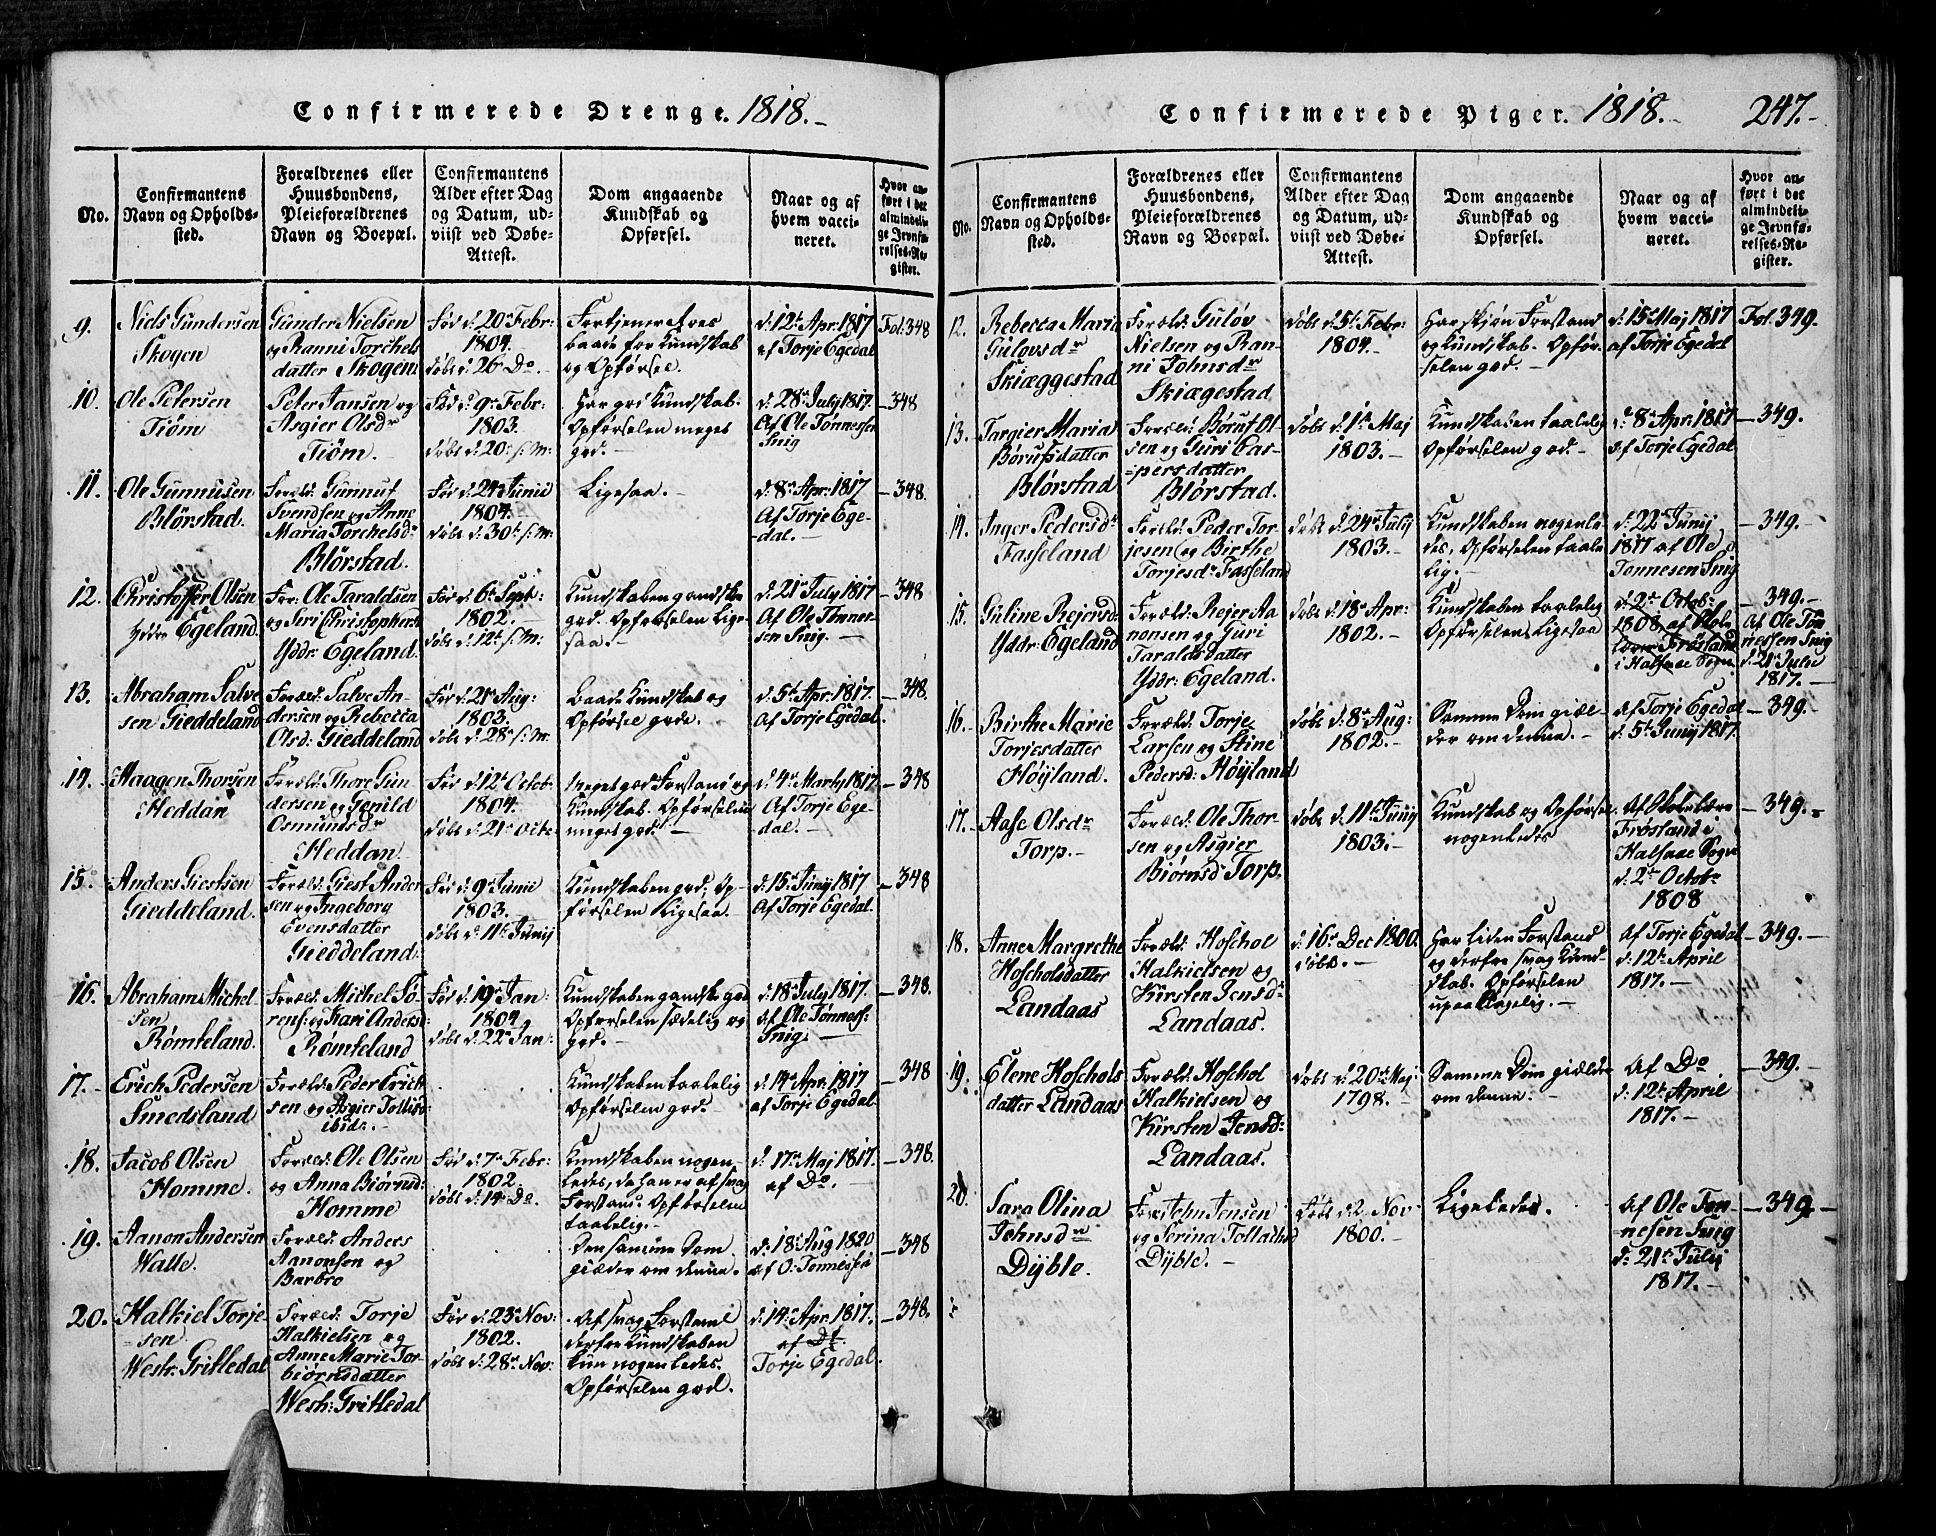 Confirmerede Drenge. 1818.-
No.
Confirmantens Navn og Opholdssted.
Forældrenes eller Huusbondens, Pleieforældrenes Navn og Boepæl.
Confirmantens Alder efter Dag og Datum, udviist ved Døbe-Attest.
Dom angaaende Kundskab og Opførsel.
Naar og af hvem vaccineret.
Hvor anført i det almindelige Jevnførelses-Register.
9.
Niels Gundersen
Skogen
Gunder Nielsen
og Ranni Torchels
datter Skogen
Fød d: 20 Febr:
1804.
døbt d: 26 Do.-
Fortjener Roes
baade for Kundskab
og Opførsel.
d: 12t Apr. 1817
af Torje Egedal
Fol. 348
10.
Ole Petersen
Tiøm
Peter Jansen og
Asgier Olsdr
Tiøm.
Fød d: 9r Febr:
1803.
døbt d: 20: s: M:
Har god Kundskab.
Opførselen meget
god.-
d: 28r July 1817.
Af Ole Tønnessen
Snig
348
11.
Ole Gunnufsen
Blørstad.
Foræld: Gunnuf
Svendsen og Anne
Maria Torchelsd:
Blørstad.
Fød d: 24 Junii
1804.
døbt d: 30t s: M:
Ligesaa.-
d: 8r Apr: 1817
Af Torje Ege-
dal.-
348.
12.
Christoffer Olsen
Yddr Egeland.
For: Ole Taraldsen
og Siri Christophers
Yddr: Egeland.
Fød d: 6r Sept:
1802.
døbt d: 12t s: M:
Kundskaben gandske
god. Opførselen Lige-
saa.-
d: 21r July 1817
Af Ole Tønnes-
sen Snig.-
348
13.
Abraham Salve
sen Gieddeland
Foræld: Salve An-
dersen og Rebecca
Olsd: Gieddeland
Fød d: 21r Aug:
1803.
døbt d: 28r s: M:
Baade Kundskab og
Opførsel gode.
d: 5t Apr: 1817.
Af Torje Egedal.
348.
14.
Haagen Thorsen
Heddan
Foræld: Thore Gun
dersen og Gunild
Osmundsdr
Heddan.
Fød d: 12t Octob:
1804.
døbt d: 21r Octr
Meget god Forstand og
Kundskab. Opførselen
meget god.-
d: 4r Marty 1817.
Af Torje Ege-
dal.-
348
15.
Anders Giestsen
Gieddeland.
Foræld: Giest Ander
sen og Ingeborg
Evensdatter
Gieddeland.
Fød d: 9r Junii
1803.
døbt d: 11t Junij
Kundskaben god. Op-
førselen Ligesaa.
d: 15r Junij 1817
Af Torje Egedal.
348
16.
Abraham Michel
sen
Rømteland.
Foræld: Michel Sø-
rens: og Kari Andersd:
Rømteland
Fød d: 19r Jan:
1804.
døbt d: 22r Jan:
Kundskaben gandske god
Opførselen sædelig og
god.-
d: 18r July 1817.
Af Ole Tønness:
Snig.-
348.
17.-
Erich Pedersen
Smedsland
Foræld: Peder Erich
sen og Asgier Tollisd:
ibid:.-
Kundskaben taalelig
Opførselen god.-
d: 14r Apr. 1817
af Torje Egedal
348
18.
Jacob Olsen
Homme.
Foræld: Ole Olsen
og Anna Biørnsd:
Homme
Fød d: 7r Febr:
1802.
døbt d: 14r Do.
Kundskaben nogen-
ledes, da han er af svag
Forstand. Opførselen
taalelig.-
d: 17r Maj 1817.
af Do.-
348.
19.
Aanon Andersen
Walle.
Foræld: Anders
Aanonsen og
Barbro
Den samme Dom
gielder om denne.
d: 18r Aug 1820
af O: Tønnessen
348
20.
Halkiel Torje-
sen.
Westr: Gritledal
Foræld: Torje
Halkielsen og
Anne Marie Tor-
biørnsdatter
Westr: Gritledal
Fød d: 23r Nov:
1802.
døbt d: 28r Nov:
Af svag Forstand
derfor Kundskaben
kun nogenledes.
Opførselen god.
d: 14r Apr. 1817.
af Do.
Torje Egedal.
348.
Confirmerede Piger. 1818.-
247.-
No.
Confirmantens Navn og Opholdssted.
Forældrenes eller Huusbondens, Pleieforældrenes Navn og Boepæl.
Confirmantens Alder efter Dag og Datum, udviist ved Døbe-Attest.
Dom angaaende Kundskab og Opførsel.
Naar og af hvem vaccineret.
Hvor anført i det almindelige Jevnførelses-Register.
12.
Rebecca Maria
Gulovsdr
Skiæggestad
Foræld: Guløv
Nielsen og Ran-
ni Johnsdr
Skiægestad
døbt d: 5t Febr:
1804.
Har skjøn Forstand
og Kundskab. Opfør-
selen god.-
d: 15r Maj 1817
af Torje Egedal
Fol. 349.
13.
Targier Maria
Børufsdatter
Blørstad
Foræld: Børuf Ol
sen og Guri Cas-
persdatter
Blørstad.
døbt d: 1te Maj
1803.-
Kundskaben taalelig
Opførselen god.-
d: 8r Apr: 1817
Af Torje Egedal
349.
14.
Inger Pedersdr
Fasseland
Foræld: Peder Tor
jesen og Birthe
Torjesdr Fasseland
døbt d: 24r July
1803.-
Kundskaben nogenle
des, Opførselen taale
lig.-
d: 22r Junij
1817 af Ole
Tønnesen Snig
349.-
15.
Guline Rejersdr
Yddr: Egeland
Foræld: Rejer Aa-
nonsen og Guri
Taraldsdatter
Yddr: Egeland.
døbt d: 18r Apr:
1802.-
Kundskaben taalelig
Opførselen Ligesaa
d: 2t Octob:
1808. af
Frøsland
i Halsaae Sogn
349.-
Af Ole Tøn
nessen Snig
d: 21r Julii
1817.-
16.
Birthe Marie
Torjesdatter
Høyland.
Foræld: Torje
Larsen og Stine
Pedersd: Høyland
døbt d: 8r Aug:
1802.-
Samme Dom giæl-
der om denne.-
Af Torje Egedal
d: 5t Junij 1817.
349.-
17.
Aase Olsdr
Torp.-
Foræld: Ole Thor-
sen og Asgier
Biørnsd Torp.
døbt d: 11t Junij
1803.-
Kundskab og Opførsel
nogenledes
Frøsland i
Halsaae Sogn
d: 2t Octobr
1808
349.-
18.
Anne Margrethe
Hoscholsdatter
Landaas
Foræld: Hoschol
Halkielsen og
Kirsten Jensdr
Landaas.
d: 16r Dec 1800.
døbt.-
Har liden Forstand
og derfor svag Kund-
skab. Opførselen
upaaklagelig.-
Af Torje Egedal
d: 12t April
1817.-
349.-
19.
Elene Hoschols
datter Landaas
Foræld: Hoschol
Halkielsen og
Kirsten Jensd:
Landaas.
døbt d: 20r Maj
1798.-
Samme Dom giælder
om denne.-
Af Do
d: 12t April
1817.-
349.-
20
Sara Olina
Johnsdr
Dyble.
For: John Jensen
og Serina
Dyble.-
Døbt d: 2. Nov.
1800.-
Ligeledes.
Af Ole Tøn-
nesen Snig
d: 21t Julij
1817.-
349